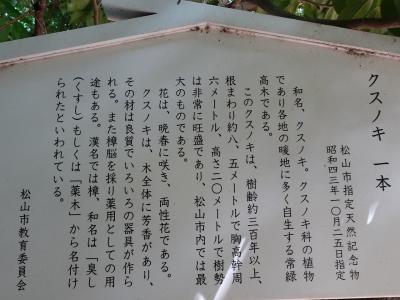 クスノキ 一本
松山市指定天然記念物
昭和四三年一〇月二五日指定
和名、クスノキ。クスノキ科の植物
であり各地の暖地に多く自生する常緑
高木である。
このクスノキは、樹齢約三百年以上、
根まわり約八、五メートルで胸高幹周
六メートル、高さ二〇メートルで樹勢
は非常に旺盛であり、松山市内では最
大のものである。
花は、晩春に咲き、両性花である。
クスノキは、木全体に芳香があり、
その材は良質でいろいろの器具が作ら
れる。また樟脳を採り薬用としての用
途もある。漢名では樟、和名は「臭し
（くすし）もしくは「薬木」から名付け
られたといわれている。
松山市教育委員会